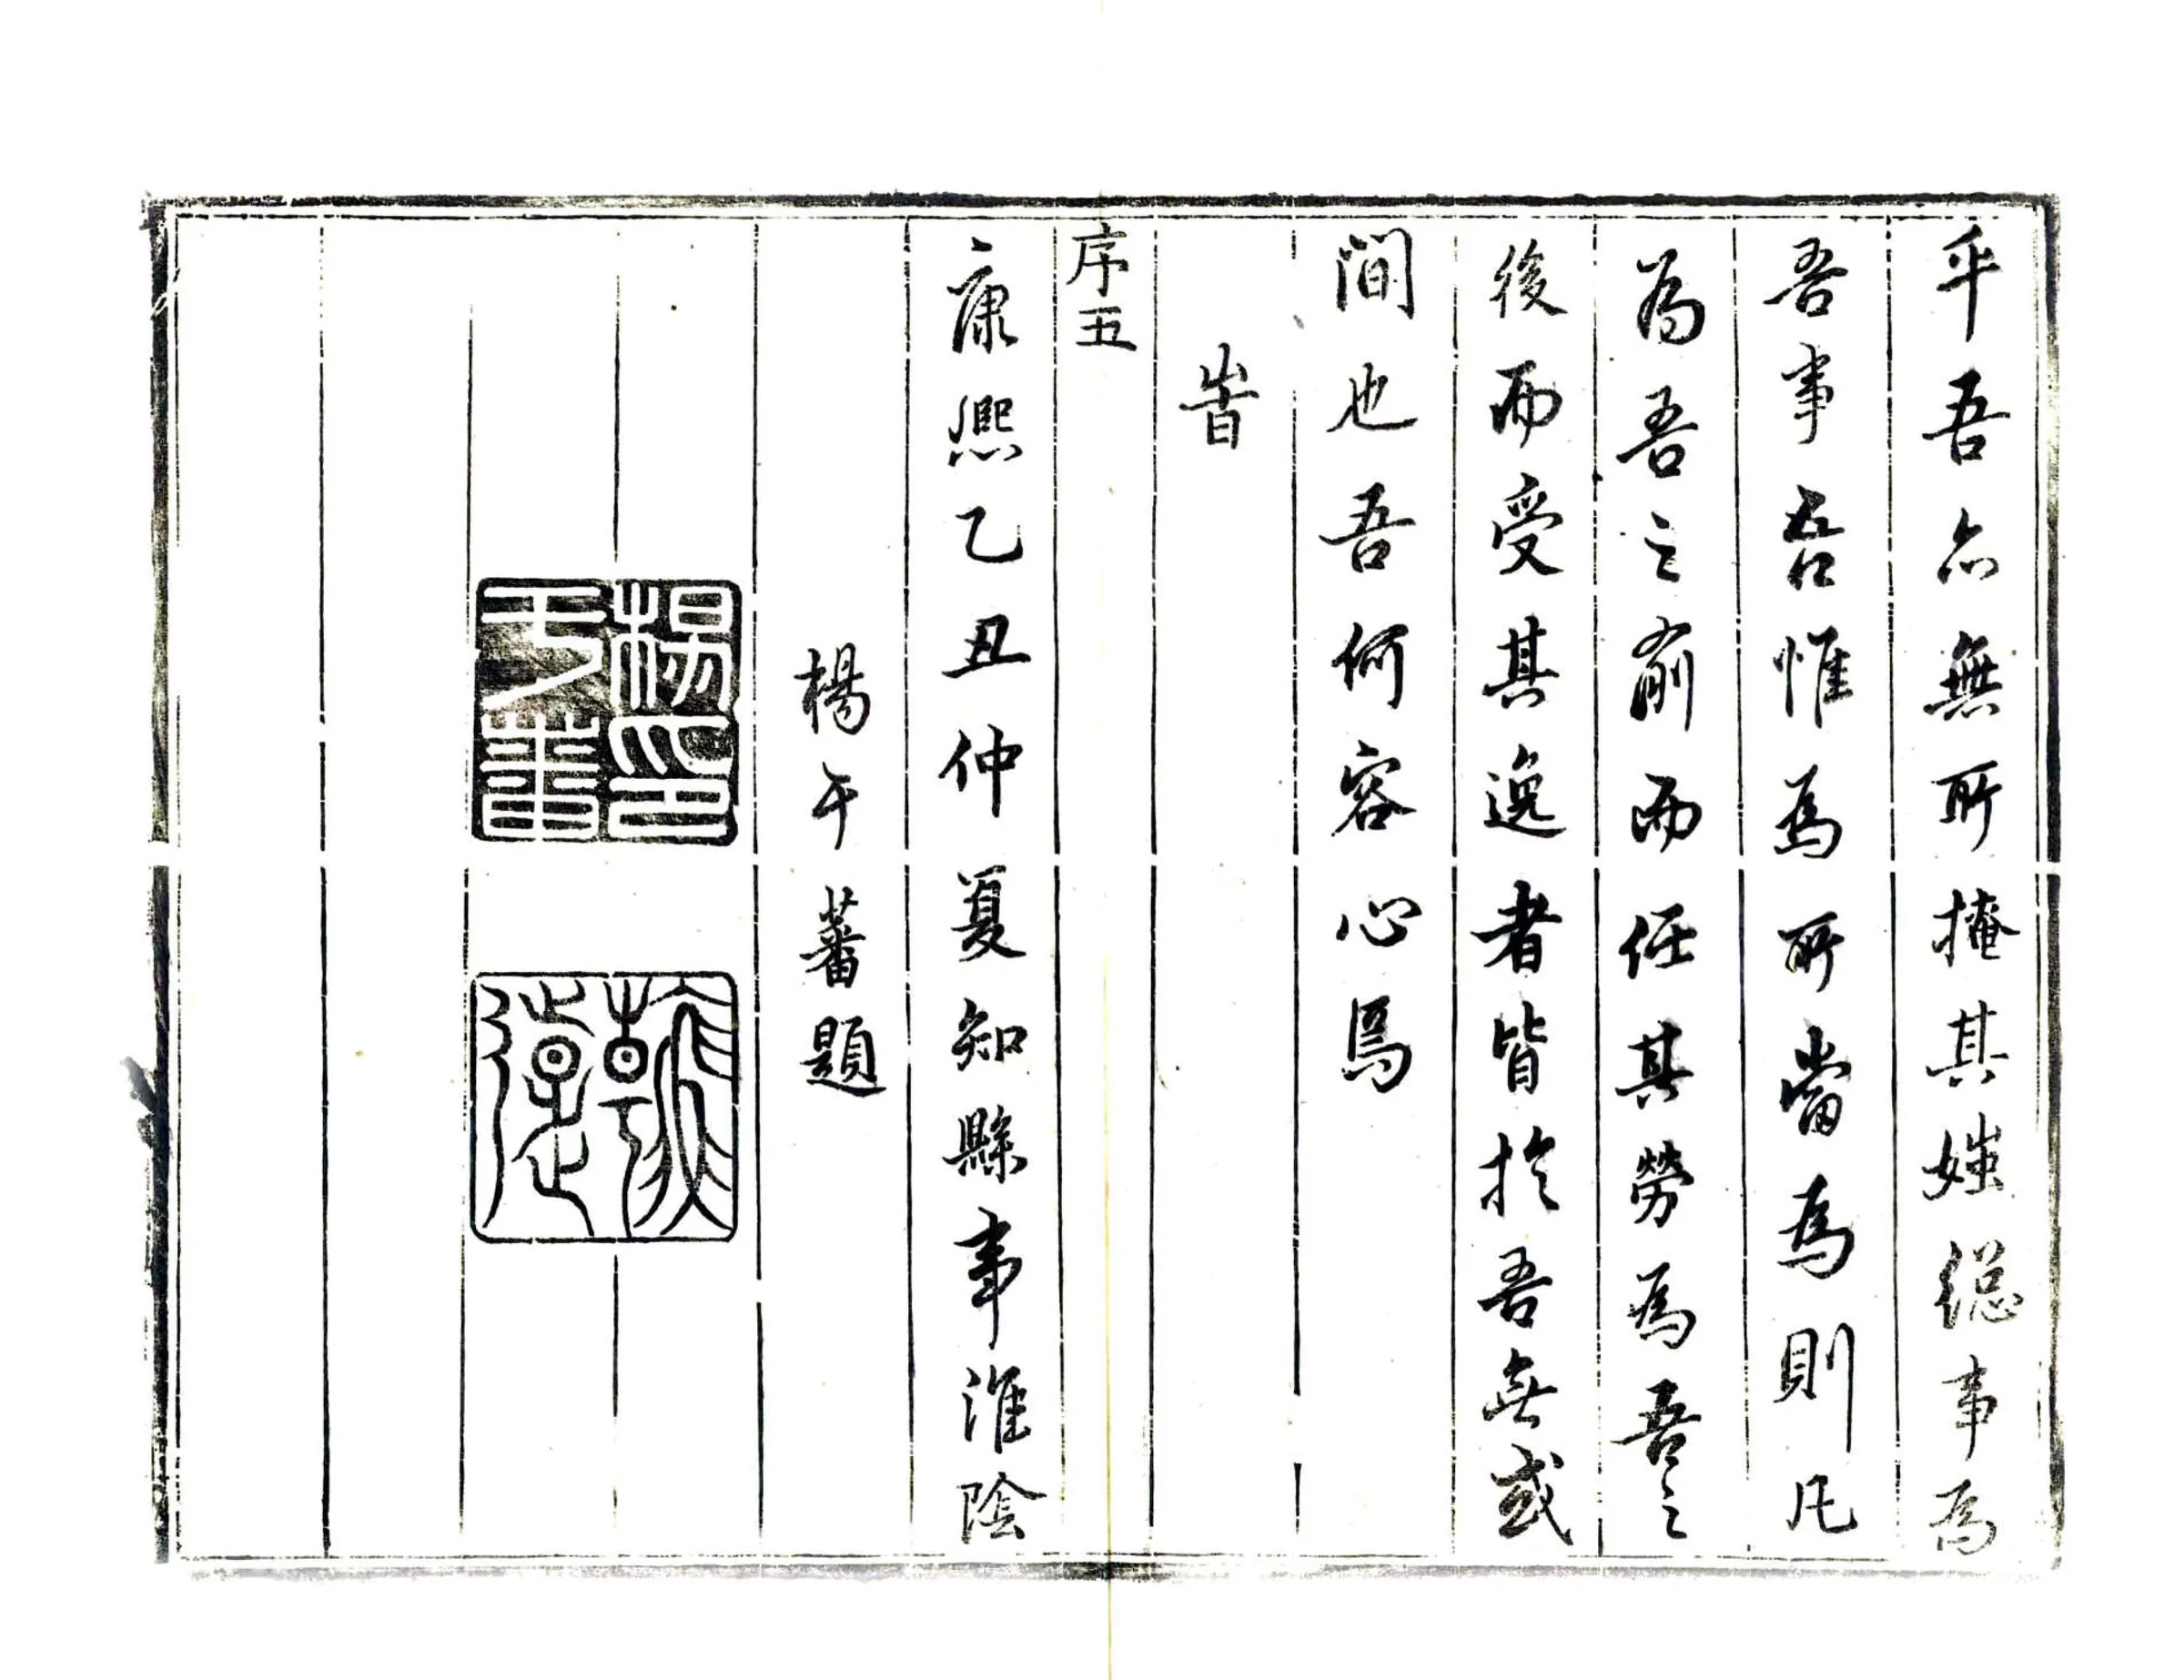 乎吾亦無所掩其媸總事為
吾事吾惟為所當為則凡
為吾之前而任其勞為吾之
後而受其逸者皆於吾無或
間也吾何容心焉
旹
序五
康熙乙丑仲夏知縣事淮陰
楊于蕃題
楊印
于蕃